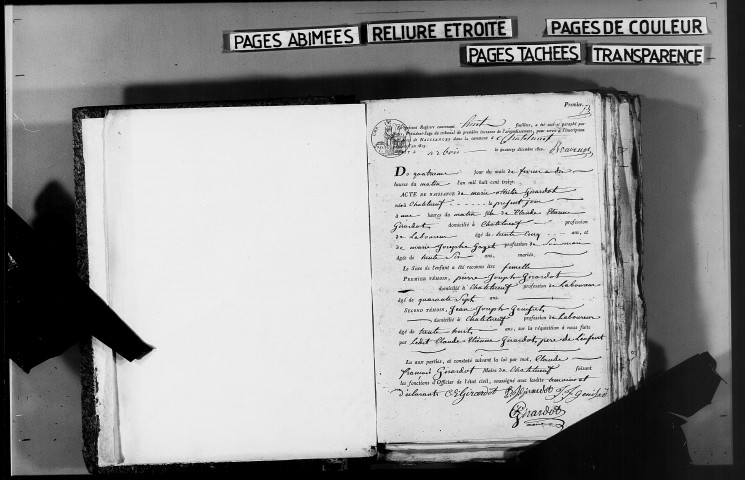 PAGES ABIMEES
RELIURE ETROITE
PAGES DE COULEUR
PAGES TACHEES
TRANSPARENCE
Premier.
présent Registre contenant huit feuillets, a été coté et paraphé par
Président-Juge du tribunal de première instance de l'arrondissement, pour servir à l'inscription
de NAISSANCES dans la commune d Chatelneuf
arbois le quatorze décembre 1812.
Du quatrieme jour du mois de fevrier à dix
heures du matin l'an mil huit cent treize
ACTE DE NAISSANCE de marie Girardot
né à Chatelneuf le présent jour
à une heures du matin fille de Claude Etienne
Girardot, domicilié à Chatelneuf profession
de Laboureur âgé de trente cinq ans, et
de marie Josephe profession de
âgée de trente six ans, mariés.
Le Sexe de l'enfant a été reconnu être femelle
PREMIER TÉMOIN, pierre Joseph Girardot
domicilié à Chatelneuf profession de Laboureur
âgé de quarante Sept ans
SECOND TÉMOIN, Jean Joseph
domicilié à Chatelneuf profession de Laboureur
âgé de trente huit ans, sur la réquisition à nous faite
par ledit Claude Etienne Girardot, pere de l'enfant
Lu aux parties, et constaté suivant la loi par moi, Claude
françois Girardot Maire de Chatelneuf faisant
les fonctions d'Officier de l'état civil, soussigné avec lesdits temoins et
declarants CE Girardot Girardot J J
Girardot